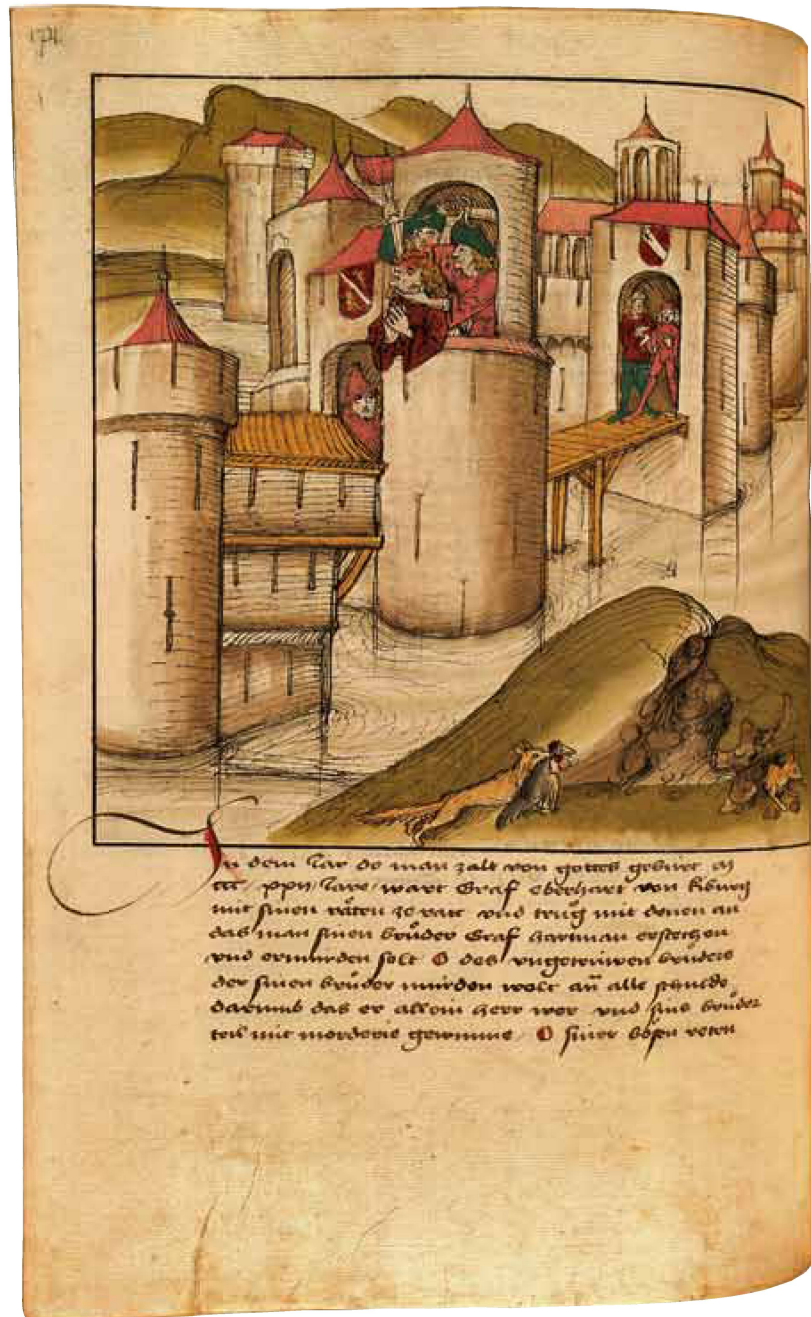 174.
In dem Jar do man zalt von gottes geburt m
ccc xxii Jare wart Graf eberhart von kiburg
mit sinen räten ze ratt vnd trüg mit denen an
das man sinen brůder Graf hartman erstechen
vnd ermürden solt O des vngetrüwen bruders
der sinen brůder mürden wolt an alle schulde
darumb das er allein herr wer vnd sins brůder
teil mit morderie gewunne O siner bösen reten